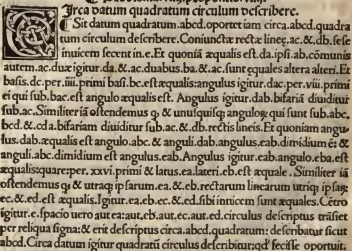 Circa datum quadratum circulum describere.
Sit datum quadratum.abcd.oportet iam circa.abcd.quadra
tum circulum describere. Coniunctæ rectæ lineę.ac.&.db.sese
inuicem secent in.e. Et quoniã æqualis est.da.ipsi.ab.cõmunis
autem.ac.duæ igitur.da.&.ac.duabus.ba.&.ac.sunt ęquales altera alteri. Et
basis.dc.per.iiii.primi basi.bc.est ęqualis:angulus igitur.dac.per.viii.primi
ei qui sub.bac.est angulo æqualis est. Angulus igitur.dab.bifariã diuiditur
sub.ac. Similiter iã ostendemus ꝙ & unusquisqꝫ anguloꝝ qui sunt sub.abc.
bcd.&.cda.bifariam diuiditur sub.ac.&.db.rectis lineis. Et quoniam angu-
lus.dab.æqualis est angulo.abc.& anguli.dab.angulus.eab.dimidium ē: &
anguli.abc.dimidium est angulus.eab.Angulus igitur.eab.angulo.eba.est
æqualis:quare:per.xxvi.primi & latus.ea.lateri.eb.est æquale. Similiter iã
ostendemus ꝙ & utraqꝫ ipsarum.ea.&.eb.rectarum linearum utriqꝫ ipsaꝝ
ec.&.ed.est æqualis.Igitur.ea.eb.ec.&.ed.sibi inuicem sunt æquales. Cētro
igitur.e.spacio uero aut ea:aut.eb.aut.ec.aut.ed.circulus descriptus trãsiet
per reliqua signa:& erit descriptus circa.abcd.quadratum: describatur sicut
abcd.Circa datum igitur quadratū circulus describitur:qđ fecisse oportuit